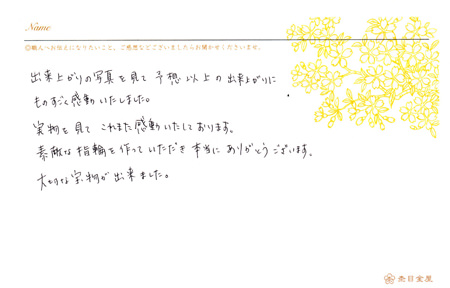 Name
◎職人へお伝えになりたいこと、ご感想などございましたらお聞かせくださいませ。
出来上がりの写真を見て予想以上の出来上がりに
ものすごく感動いたしました。
実物を見てこれまた感動いたしております。
素敵な指輪を作っていただき本当にありがとうございます。
大切な宝物が出来ました。
杢目金屋